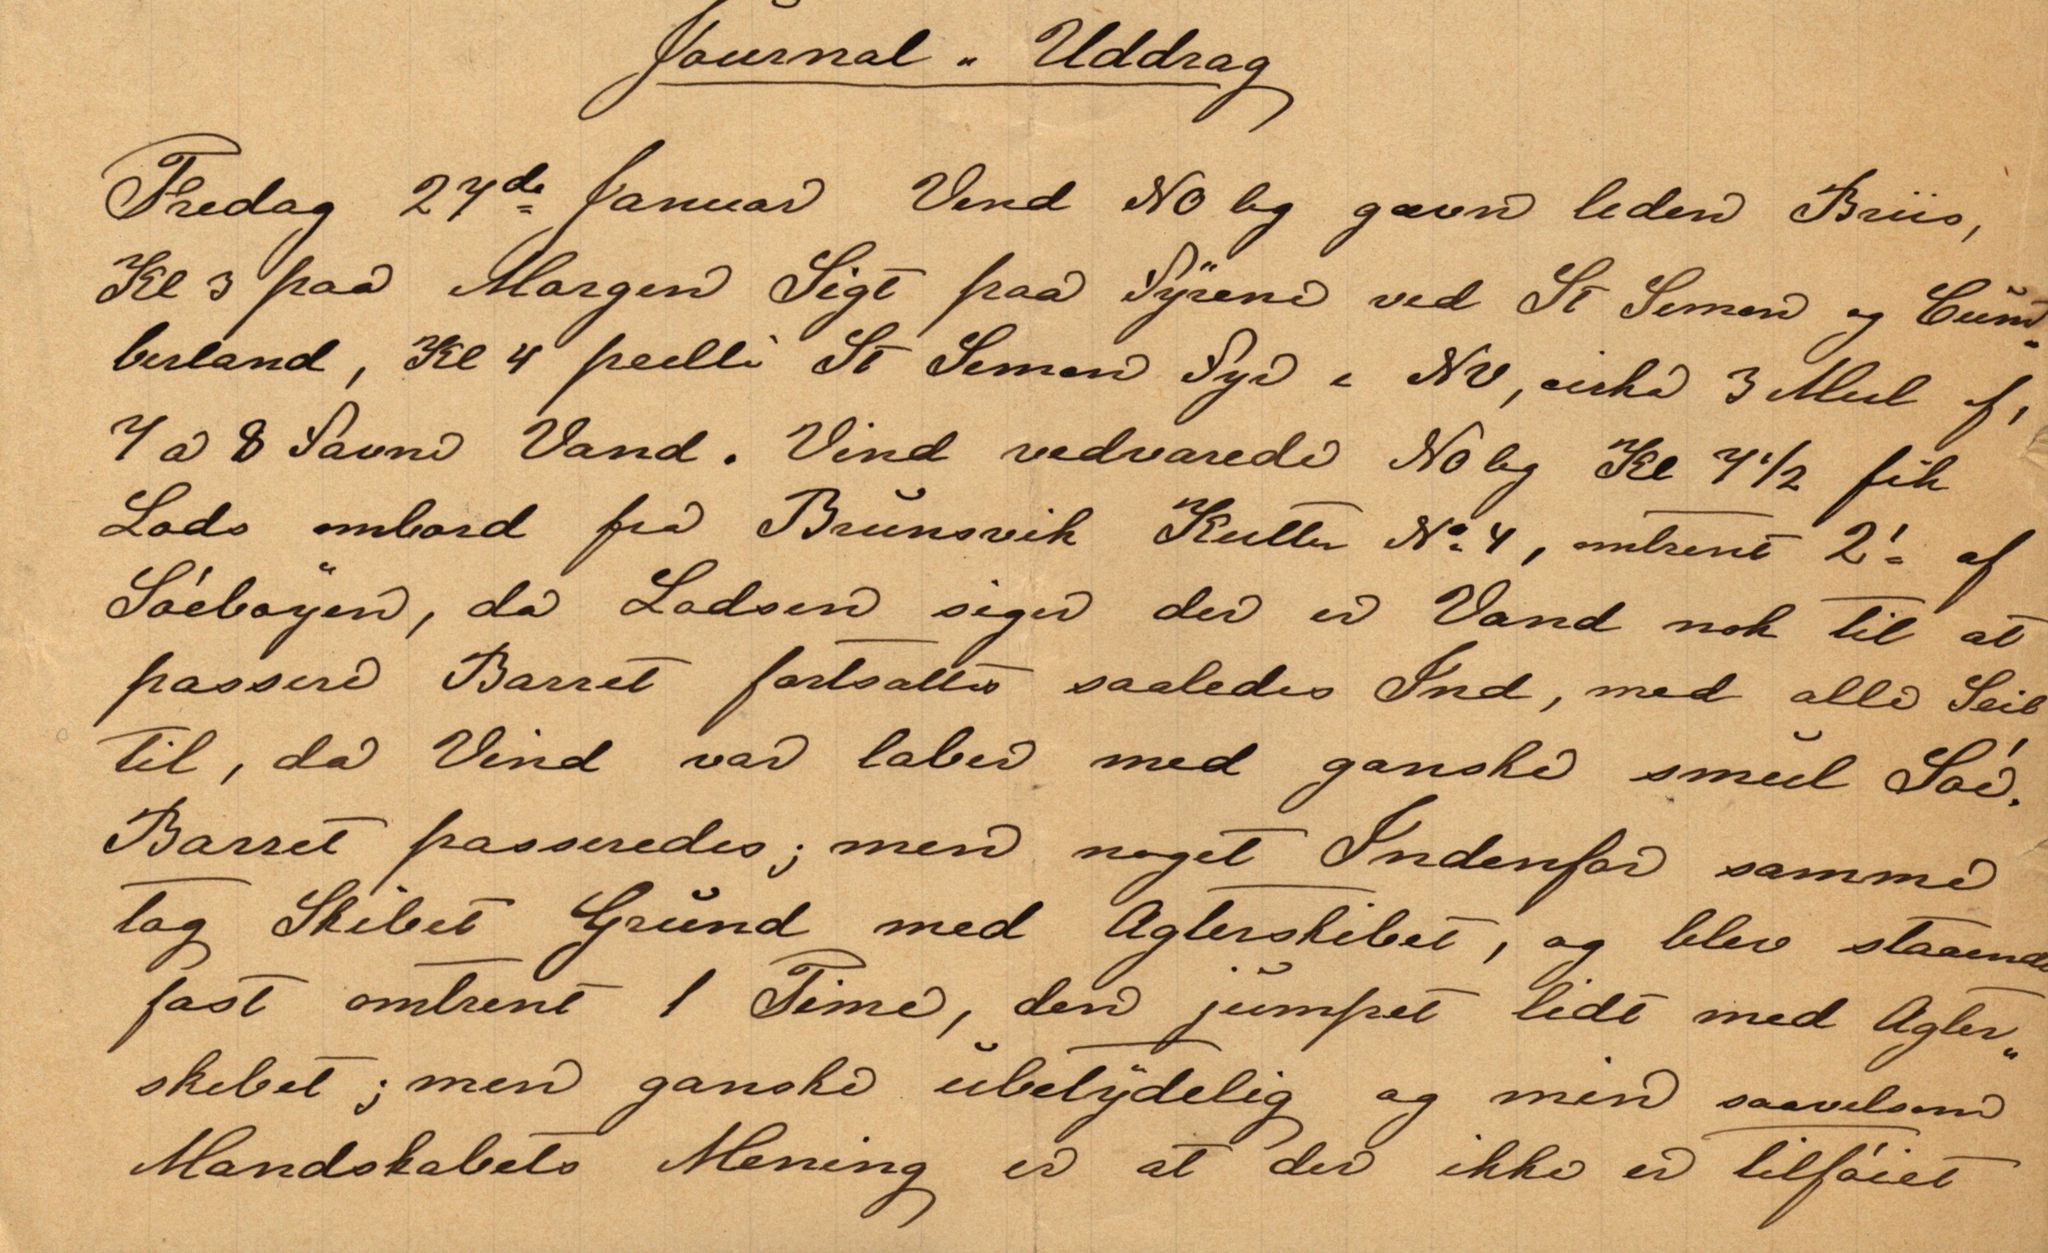 Journal " Uddrag
Fredag 27de Januar Vind NO lig gævn liden Briis,
Kl 3 paa Morgen Sigt paa Fÿrene ved St Simon og Cum=
berland, Kl 4 peilte St Simon Fyr i NV, cirka 3 Miil af,
7 a 8 Favne Vand. Vind vedvarede NO lig Kl 7 1/2 fik
Lods ombord fra Brunsvik Kutter No 4, omtrent 2' af
Söeboÿen, da Lodsen siger der er Vand nok til at
passere Barret fortsattes saaledes Ind, med alle Seil
til, da Vind var laber med ganske smul Söe.
Barret passeredes; men noget Indenfor samme
tog Skibet Grund med Agterskibet, og blev staaende
fast omtrent 1 Time, den jumpet lidt med Agter"
skibet; men ganske ubetÿdelig og min saavelsom
Mandskabets Mening er at der ikke er tilföiet